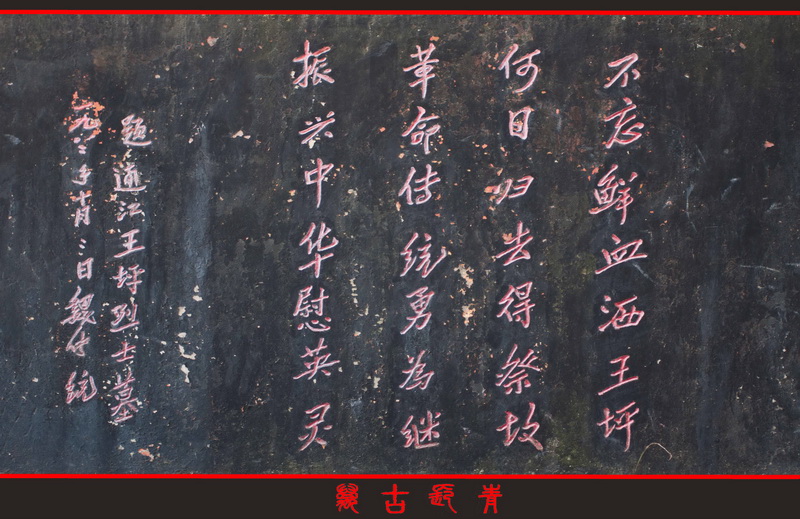 不忘鲜血洒王坪
何日归去得祭坟
革命传统勇為继
振兴中华慰英灵
题通江王坪烈士墓
一九八三年十月三日魏传统
萬古長青